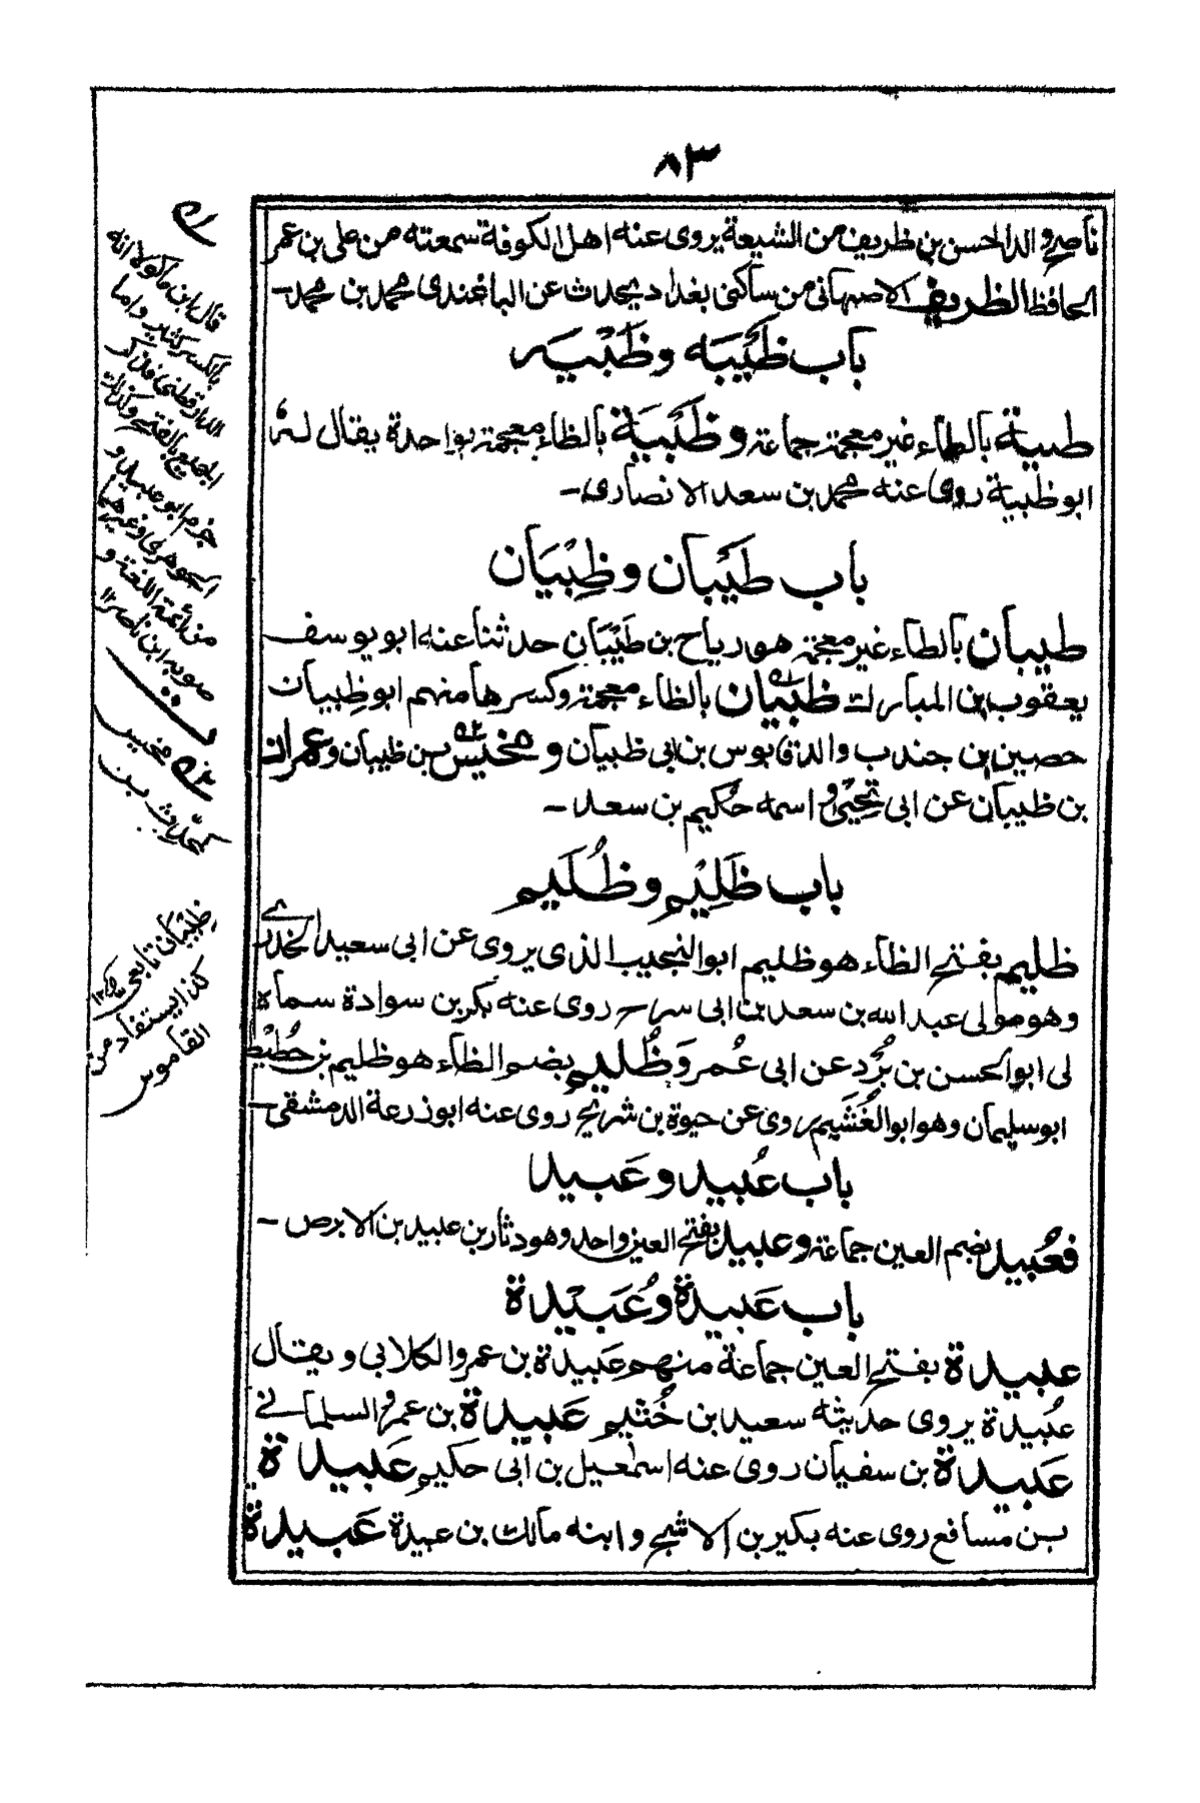 ٨٣
ناصح والد الحسن بن ظريف من الشيعة يروى عنه اهل الكوفة سمعته من على بن عمر
الحافظ الظريف الاصبهانى من ساكنى بغداد يحدث عن الباغندى محمد بن محمد-
باب طَيِّبَه وظَبْيَه
طيبة بالطاء غير معجمة جماعة وظَبْيَة بالظاء معجمة بواحدة يقال له
ابو ظبية روى عنه محمد بن سعد الانصارى-
باب طَيِّبان وظِبْيَان
طيبان بالطاء غير معجمة هو رياح بن طَيِّبَان حدثنا عنه ابو يوسف
يعقوب بن المبارك ظبْيان بالظاء معجمة وكسرها منهم ابو ظِبيان
حصين بن جندب والد قابوس بن ابى ظبيان و مخيس بن ظبيان وعمران
بن ظبيان عن ابى تِحْيٰى و اسمه حُكيم بن سعد -
باب ظَلِيْم وظُلَيم
ظليم بفتح الظاء هو ظليم ابو النجيب الذى يروى عن ابى سعيد الخدرى
وهو مولى عبد الله بن سعد بن ابى سرح روى عنه بكر بن سوادة سماه
لى ابو الحسن بن بُرْد عن ابى عُمر وَظُليم بضم الظاء هو ظليم بن حُطَيْط
ابو سليمان وهو ابو الغُشَيم روى عن حيوة بن شريح روى عنه ابو زرعة الدمشقى-
باب عُبيد وعَبيد
فعُبيد بضم العين جماعة وعبيد بفتح العين واحد وهو دثار بن عبيد بن الابرص -
باب عَبيدة وعُبَيْدة
عبيدة بفتح العين جماعة منهم عَبيدة بن عمرو الكلابى ويقال
عُبيدة يروى حديثه سعيد بن خُثيم عَبيدة بن عمرو السلمانى
عَبيدة بن سفيان روى عنه اسمعيل بن ابى حكيم عَبيدة
بن مسافع روى عنه بكير بن الاشج وابنه مالك بن عبيدة عَبيدة
قال ابن ماكولا انه
بالكسر كثير واما
الدارقطنى فذكر
الجميع بالفتح وكذلك
جزم ابو عبيد و
الجوهرى وغيرهما
من ائمة اللغة و
صوبه ابن ناصر ١٢
مخيس
كمحدّث بن
ظِبْيَان تابعى
كذا يستفاد من
القاموس